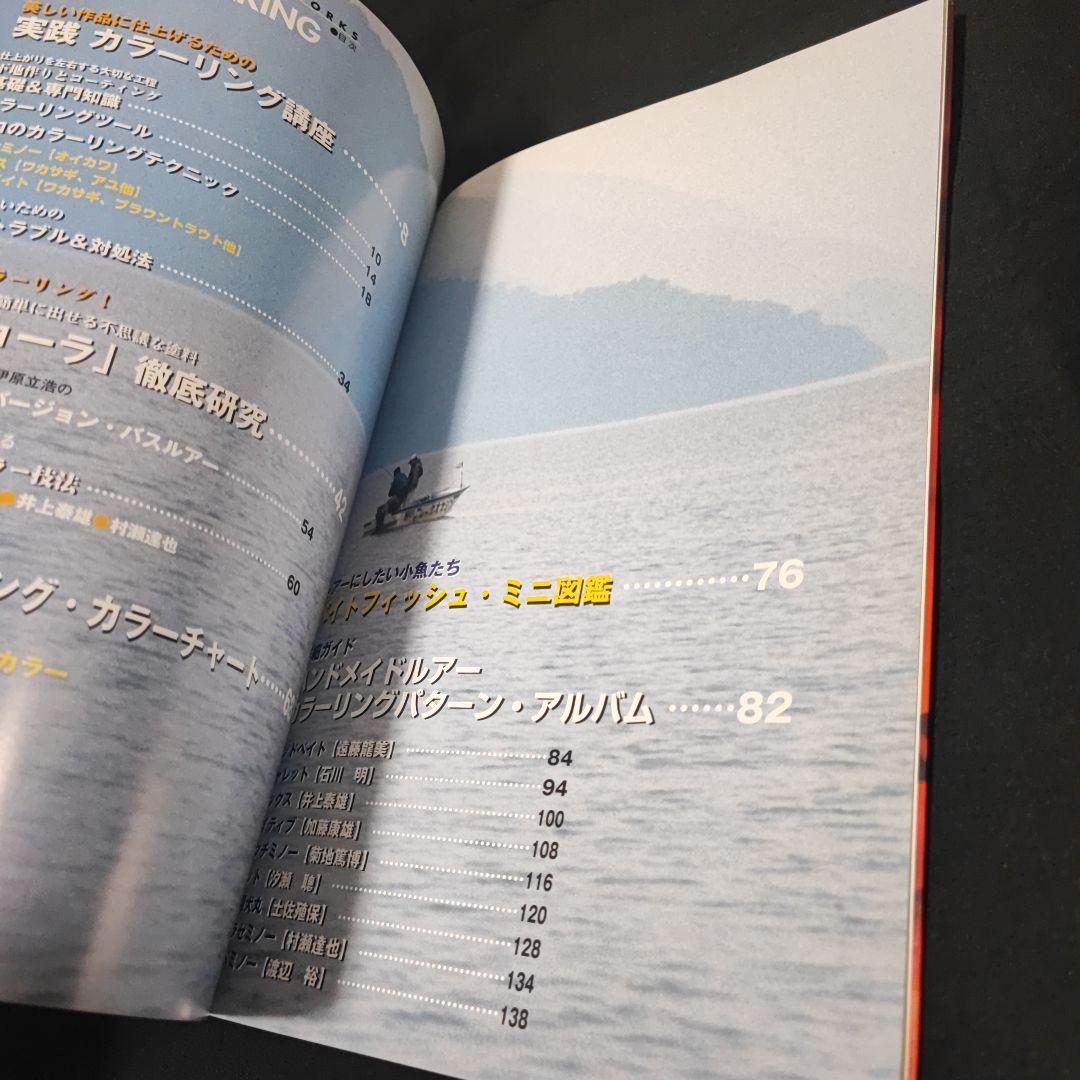 ORKS
KING
●目次
美しい作品に仕上げるための
実践 カラーリング講座 8
仕上がりを左右する大切な工程
下地作りとコーティング
基礎&専門知識 10
ラーリングツール 14
のカラーリングテクニック 18
ミノー【オイカワ】
ス【ワカサギ、アユ他】
イト【ワカサギ、ブラウントラウト他】
いための
ラブル&対処法 34
ラーリング!
簡単に出せる不思議な塗料
ーラ」徹底研究 42
伊原立浩の
バージョン・バスルアー 54
る
ー技法 60
●井上泰雄●村瀬達也
ング・カラーチャート
カラー
アーにしたい小魚たち
イトフィッシュ・ミニ図鑑 76
ガイド
ンドメイドルアー
ラーリングパターン・アルバム 82
ドベイト【遠藤龍美】 84
ャレット【石川 明】 94
ックス【井上泰雄】 100
イティブ【加藤康雄】 108
チミノー【菊地篤博】 116
ット【汐瀬 聰】 120
大丸【土佐殖保】 128
ラセミノー【村瀬達也】 134
ミノー【渡辺 裕】 138